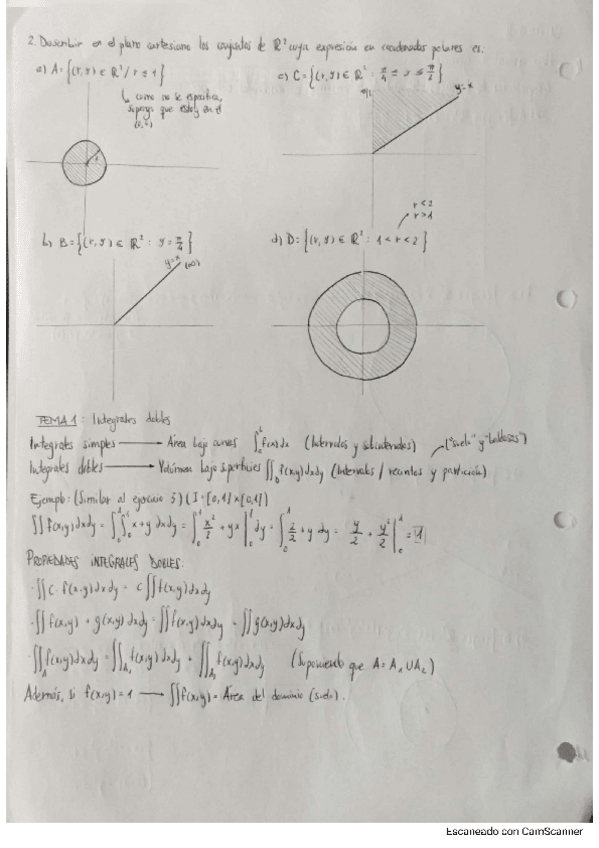 2. Describir en el plano cartesiano los conjuntos de ℝ² cuya expresión en coordenadas polares es:
a) A = {(r,φ) ∈ ℝ² / r ≤ 1}
↳ como no se especifica,
supongo que estoy en el
(0,0)
c) C = {(r,φ) ∈ ℝ² : π/4 ≤ φ ≤ π/2}
π/2
y=x
1
b) B = {(r,φ) ∈ ℝ² : φ = π/4}
y=x
(∞)
r<2
r>1
d) D = {(r,φ) ∈ ℝ² : 1<r<2}
TEMA 1: Integrales dobles
Integrales simples → Área bajo curvas ∫_a^b f(x)dx (Intervalos y subintervalos) ("suelo" y "baldosas")
Integrales dobles → Volúmen bajo superficies ∫∫_D f(x,y)dxdy (Intervals / recintos y partición)
Ejemplo: (Similar al ejercicio 3) (I=[0,1]x[0,1])
∫∫f(x,y)dxdy = ∫_0^1∫_0^1 x+y dxdy = ∫_0^1 x²/2 + yx |_0^1 dy = ∫_0^1 1/2 + y dy = y/2 + y²/2 |_0^1 = 1
PROPIEDADES INTEGRALES DOBLES:
·∫∫c·f(x,y)dxdy = c∫∫f(x,y)dxdy
·∫∫f(x,y) + g(x,y)dxdy = ∫∫f(x,y)dxdy + ∫∫g(x,y)dxdy
·∫∫_A f(x,y)dxdy = ∫∫_A₁ f(x,y)dxdy + ∫∫_A₂ f(x,y)dxdy (Suponiendo que A = A₁ ∪ A₂)
Además, si f(x,y)=1 → ∫∫f(x,y) = Área del dominio (suelo).
Escaneado con CamScanner